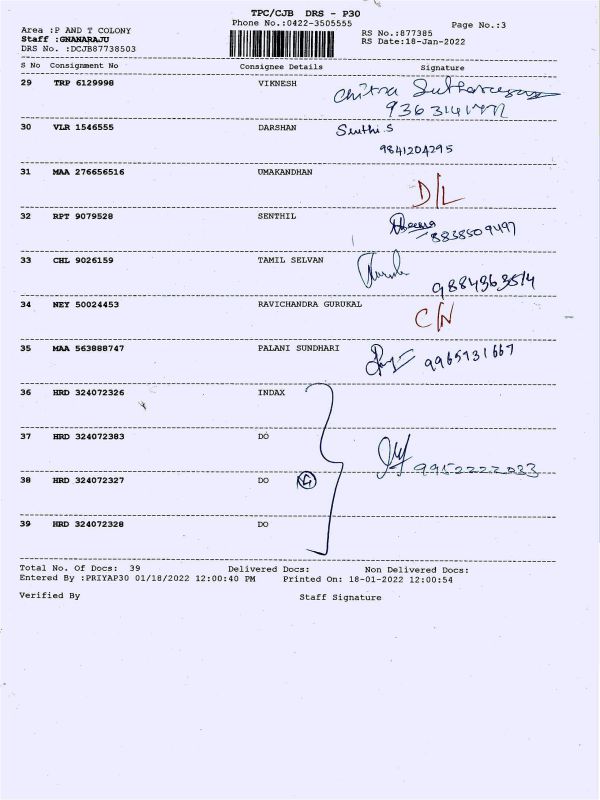 TPC/CJB DRS - P30
Phone No.:0422-3505555
Page No.:3
Area :P AND T COLONY
RS No.:877385
Staff :GNANARAJU
RS Date:18-Jan-2022
DRS No. :DCJB87738503
S No Consignment No Consignee Details Signature
29 TRP 6129998 VIKNESH Chitra
30 VLR 1546555 DARSHAN Senthi S
9841204295
31 MAA 276656516 UMAKANDHAN D/L
32 RPT 9079528 SENTHIL
8838509497
33 CHL 9026159 TAMIL SELVAN
9884363514
34 NEY 50024453 RAVICHANDRA GURUKAL C/N
35 MAA 563888747 PALANI SUNDHARI 9965931667
36 HRD 324072326 INDAX
37 HRD 324072383 DO
9952222033
38 HRD 324072327 DO
39 HRD 324072328 DO
Total No. Of Docs: 39 Delivered Docs: Non Delivered Docs:
Entered By :PRIYAP30 01/18/2022 12:00:40 PM Printed On: 18-01-2022 12:00:54
Verified By Staff Signature